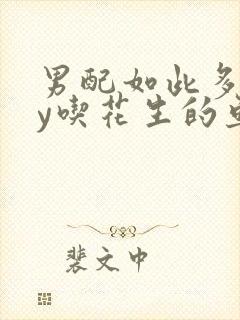 男配如此多
y喫花生的
裴文中